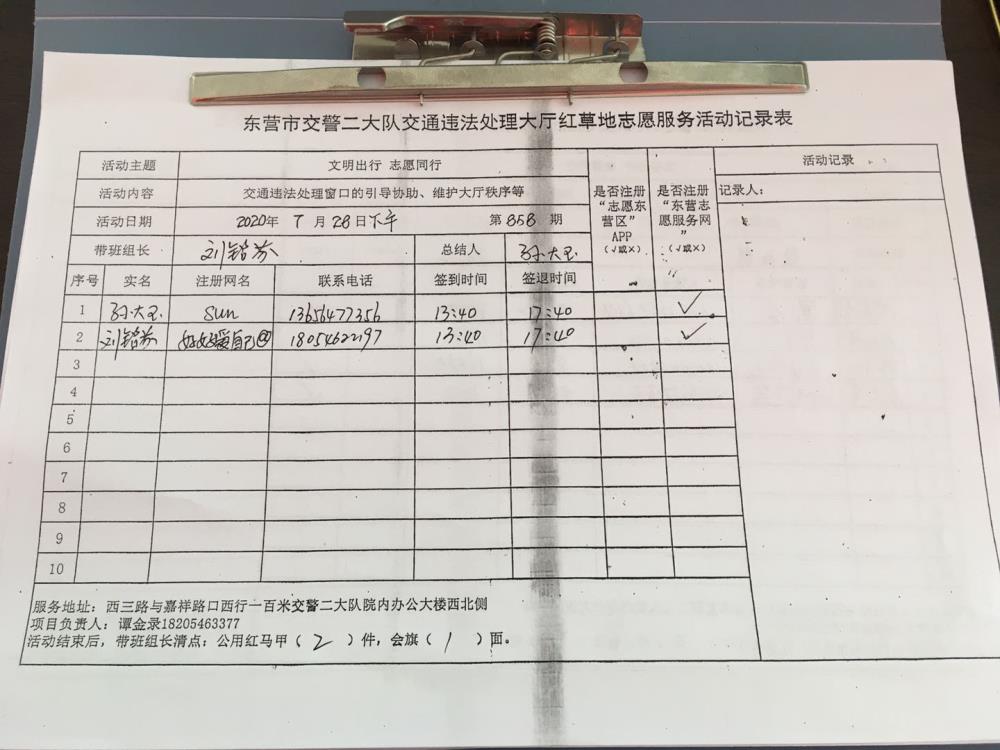 东营市交警二大队交通违法处理大厅红草地志愿服务活动记录表
活动主题 文明出行 志愿同行
活动内容 交通违法处理窗口的引导协助、维护大厅秩序等
活动日期 2020年 7 月 28 日下午 第 858 期
带班组长 刘铭芬 总结人 孙大玉
是否注册“志愿东营区”APP（√或×）
是否注册“东营志愿服务网”（√或×）
活动记录
记录人：
序号 实名 注册网名 联系电话 签到时间 签退时间
1 孙大玉 sun 13656477356 13:40 17:40 ✓
2 刘铭芬 好好爱自己@ 18054622197 13:40 17:40 ✓
3
4
5
6
7
8
9
10
服务地址：西三路与嘉祥路口西行一百米交警二大队院内办公大楼西北侧
项目负责人：谭金录18205463377
活动结束后，带班组长清点：公用红马甲（ 2 ）件，会旗（ 1 ）面。